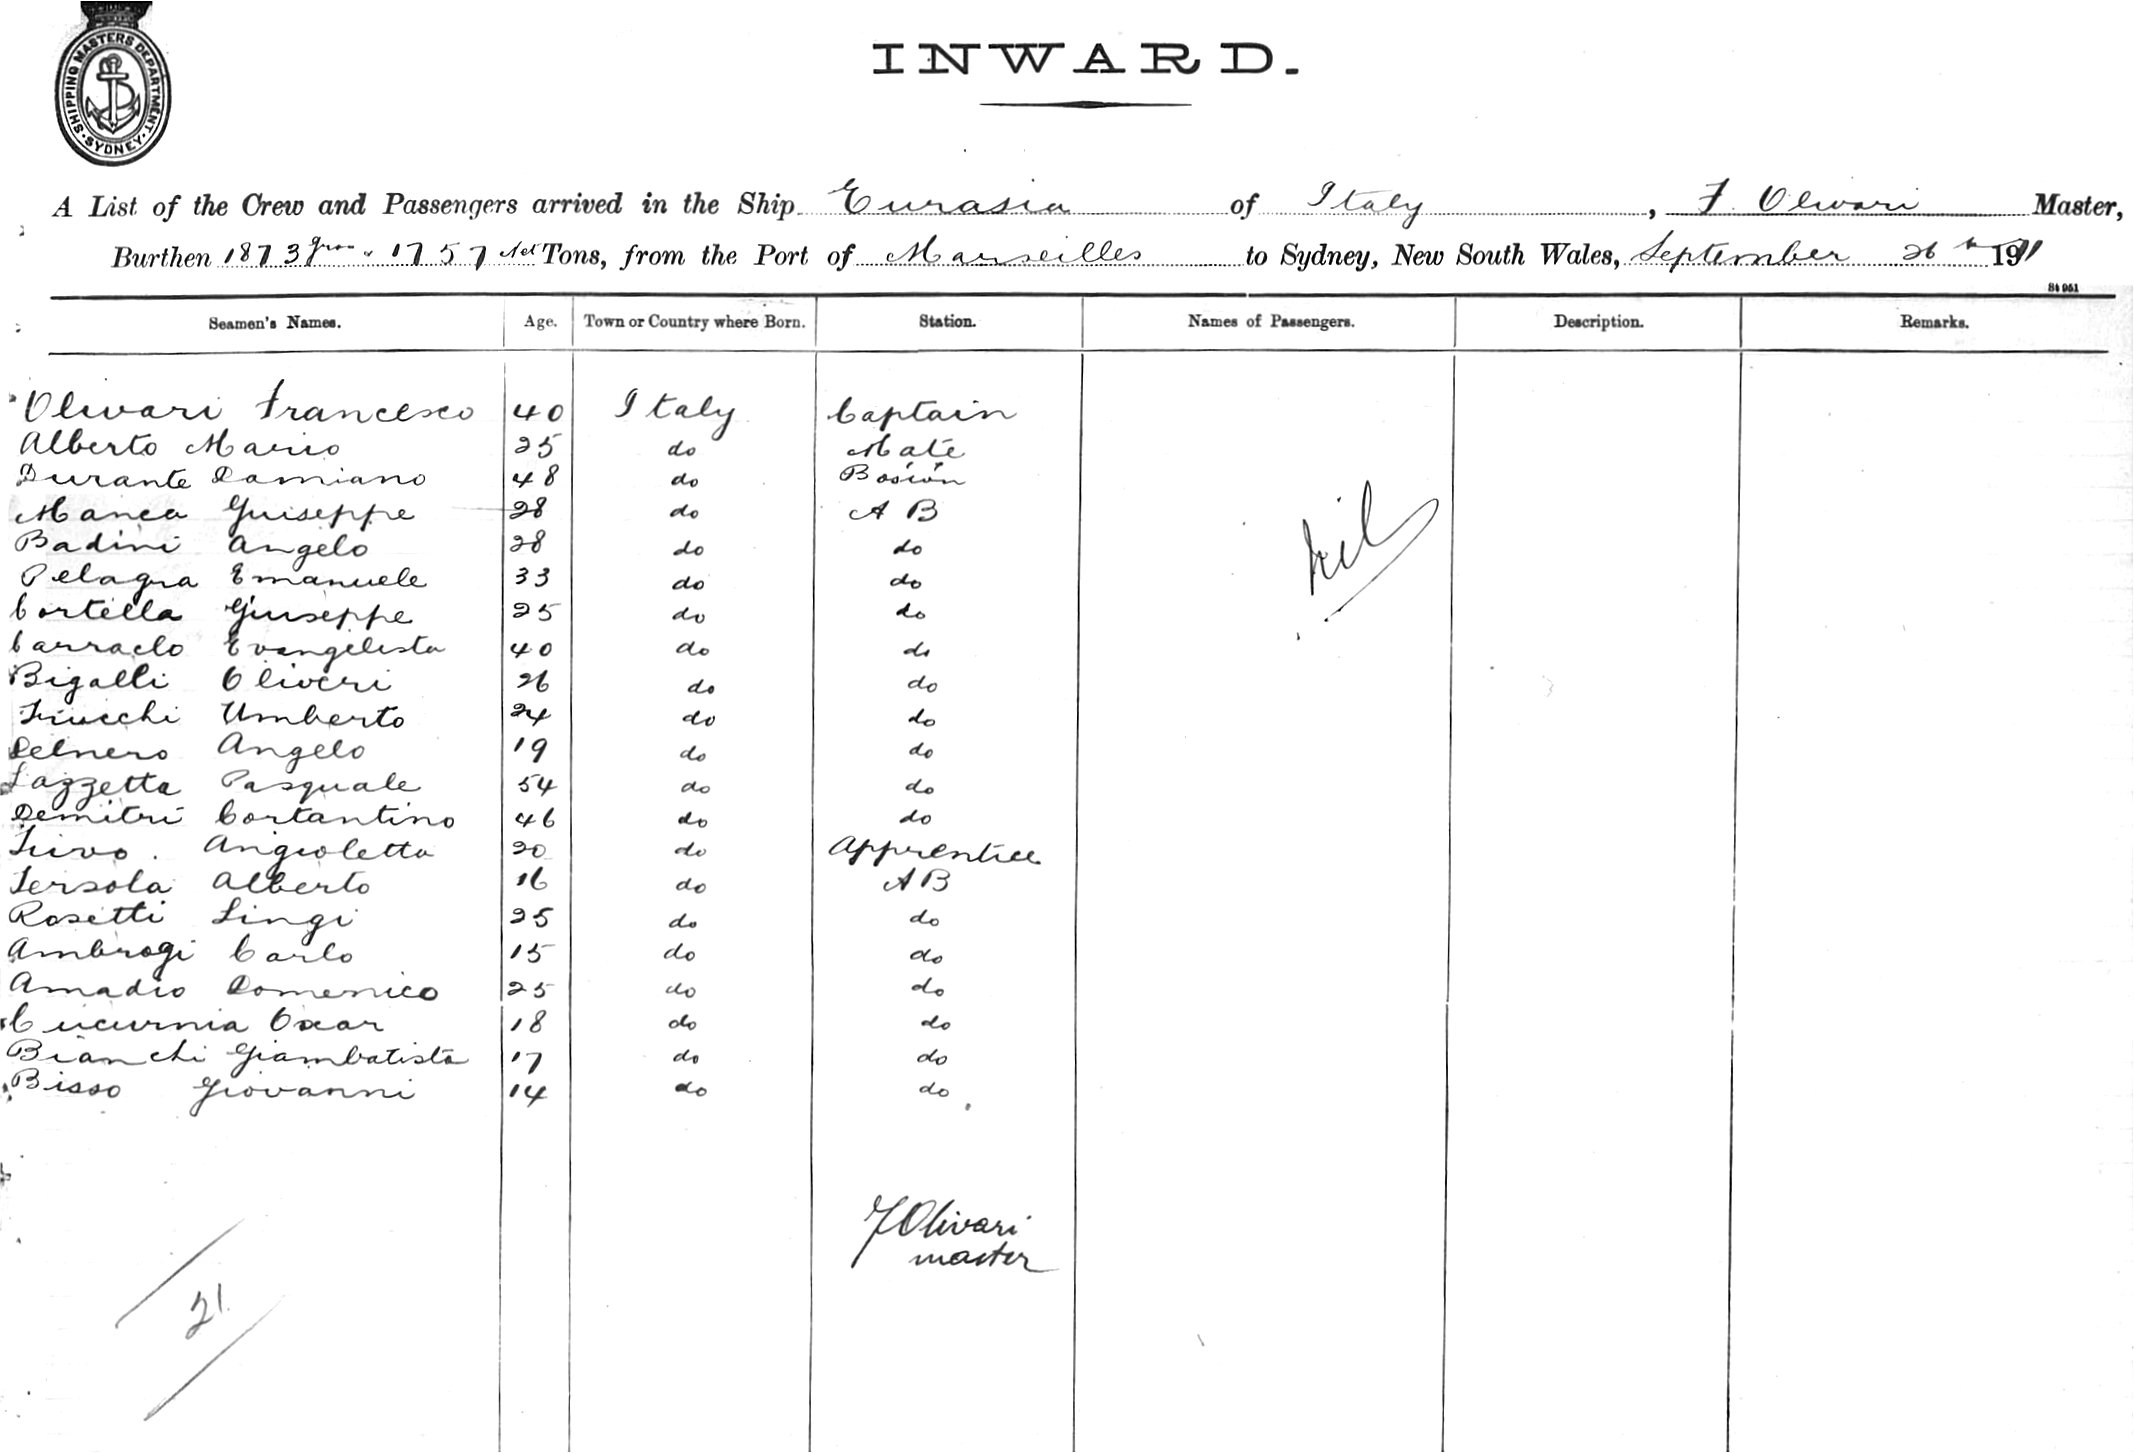 SHIPPING MASTERS DEPARTMENT
SYDNEY
INWARD.
A List of the Crew and Passengers arrived in the Ship Eurasia of Italy, F. Olivari Master,
Burthen 1873 gros 1757 Net Tons, from the Port of Marseilles to Sydney, New South Wales, September 26th 1911
St 951
Seamen's Names. Age. Town or Country where Born. Station. Names of Passengers. Description. Remarks.
Olivari Francesco 40 Italy Captain
Alberto Mario 25 do Mate
Durante Damiano 48 do Bosun
Manca Guiseppe 28 do A B
Badini Angelo 28 do do
Pelagra Emanuele 33 do do
Cortella Giuseppe 25 do do
Carraclo Evangelista 40 do do
Bigalli Oliveri 26 do do
Trucchi Umberto 24 do do
Delnero Angelo 19 do do
Lazzetta Pasquale 54 do do
Demitri Cortantino 46 do do
Angioletta 20 do Apprentice
Tersola Alberto 16 do A B
Rosetti Lingi 25 do do
Ambrogi Carlo 15 do do
Amadio Domenico 25 do do
Cucurnia Oscar 18 do do
Bianchi Giambatista 17 do do
Bisso Giovanni 14 do do
nil
F Olivari
master
21